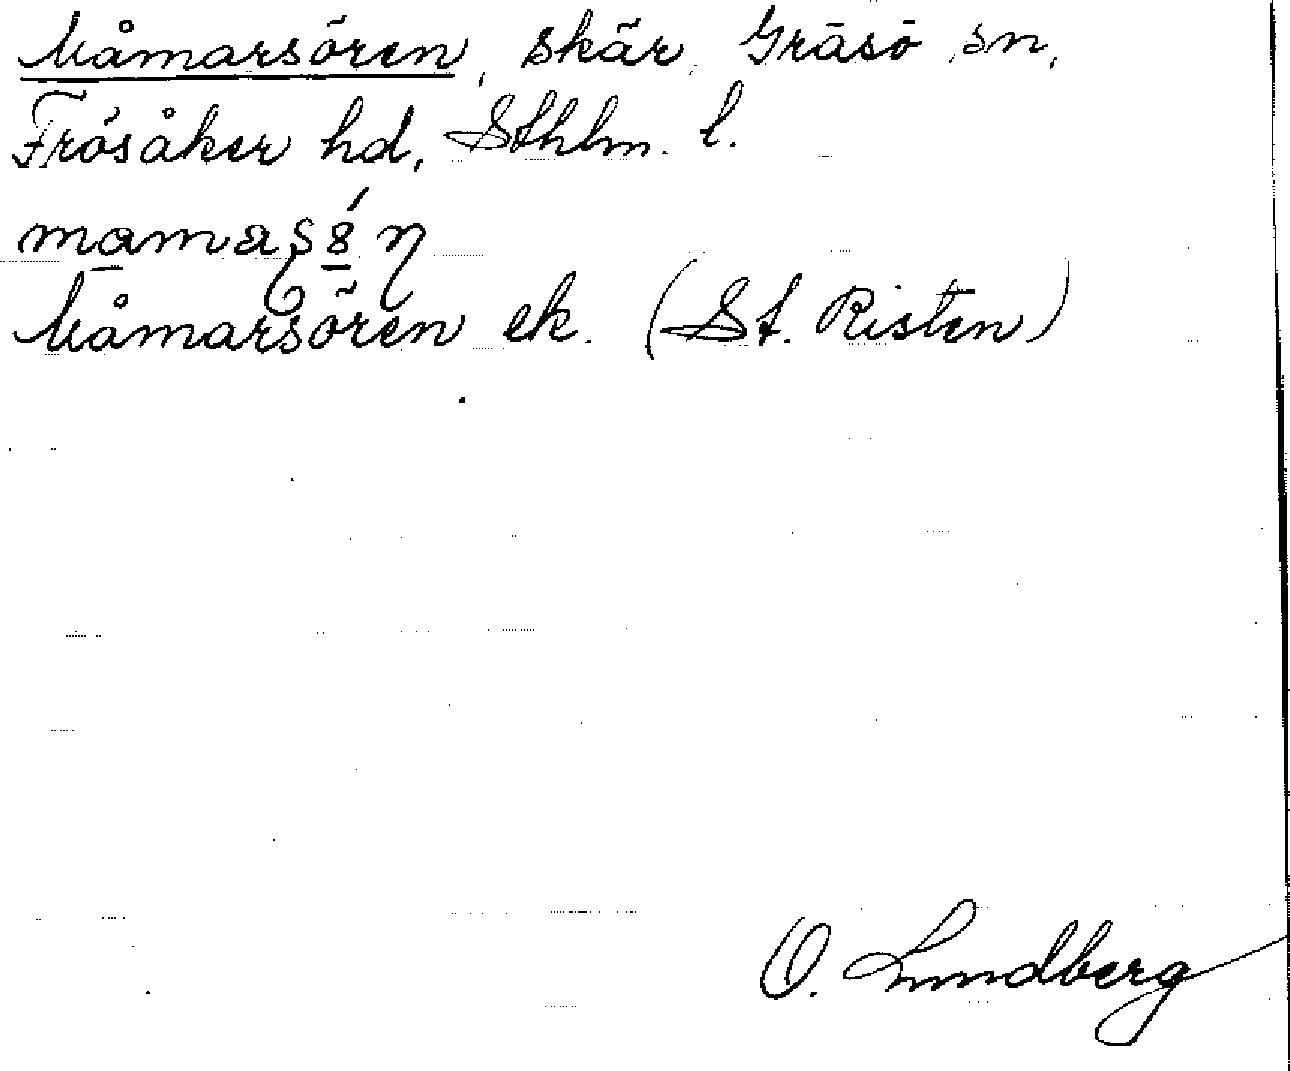 Måmarsören, skär, Gräsö sn,
Frösåker hd, Sthlm. l.
Måmarsören ek. (St. Risten)
O. Lundberg